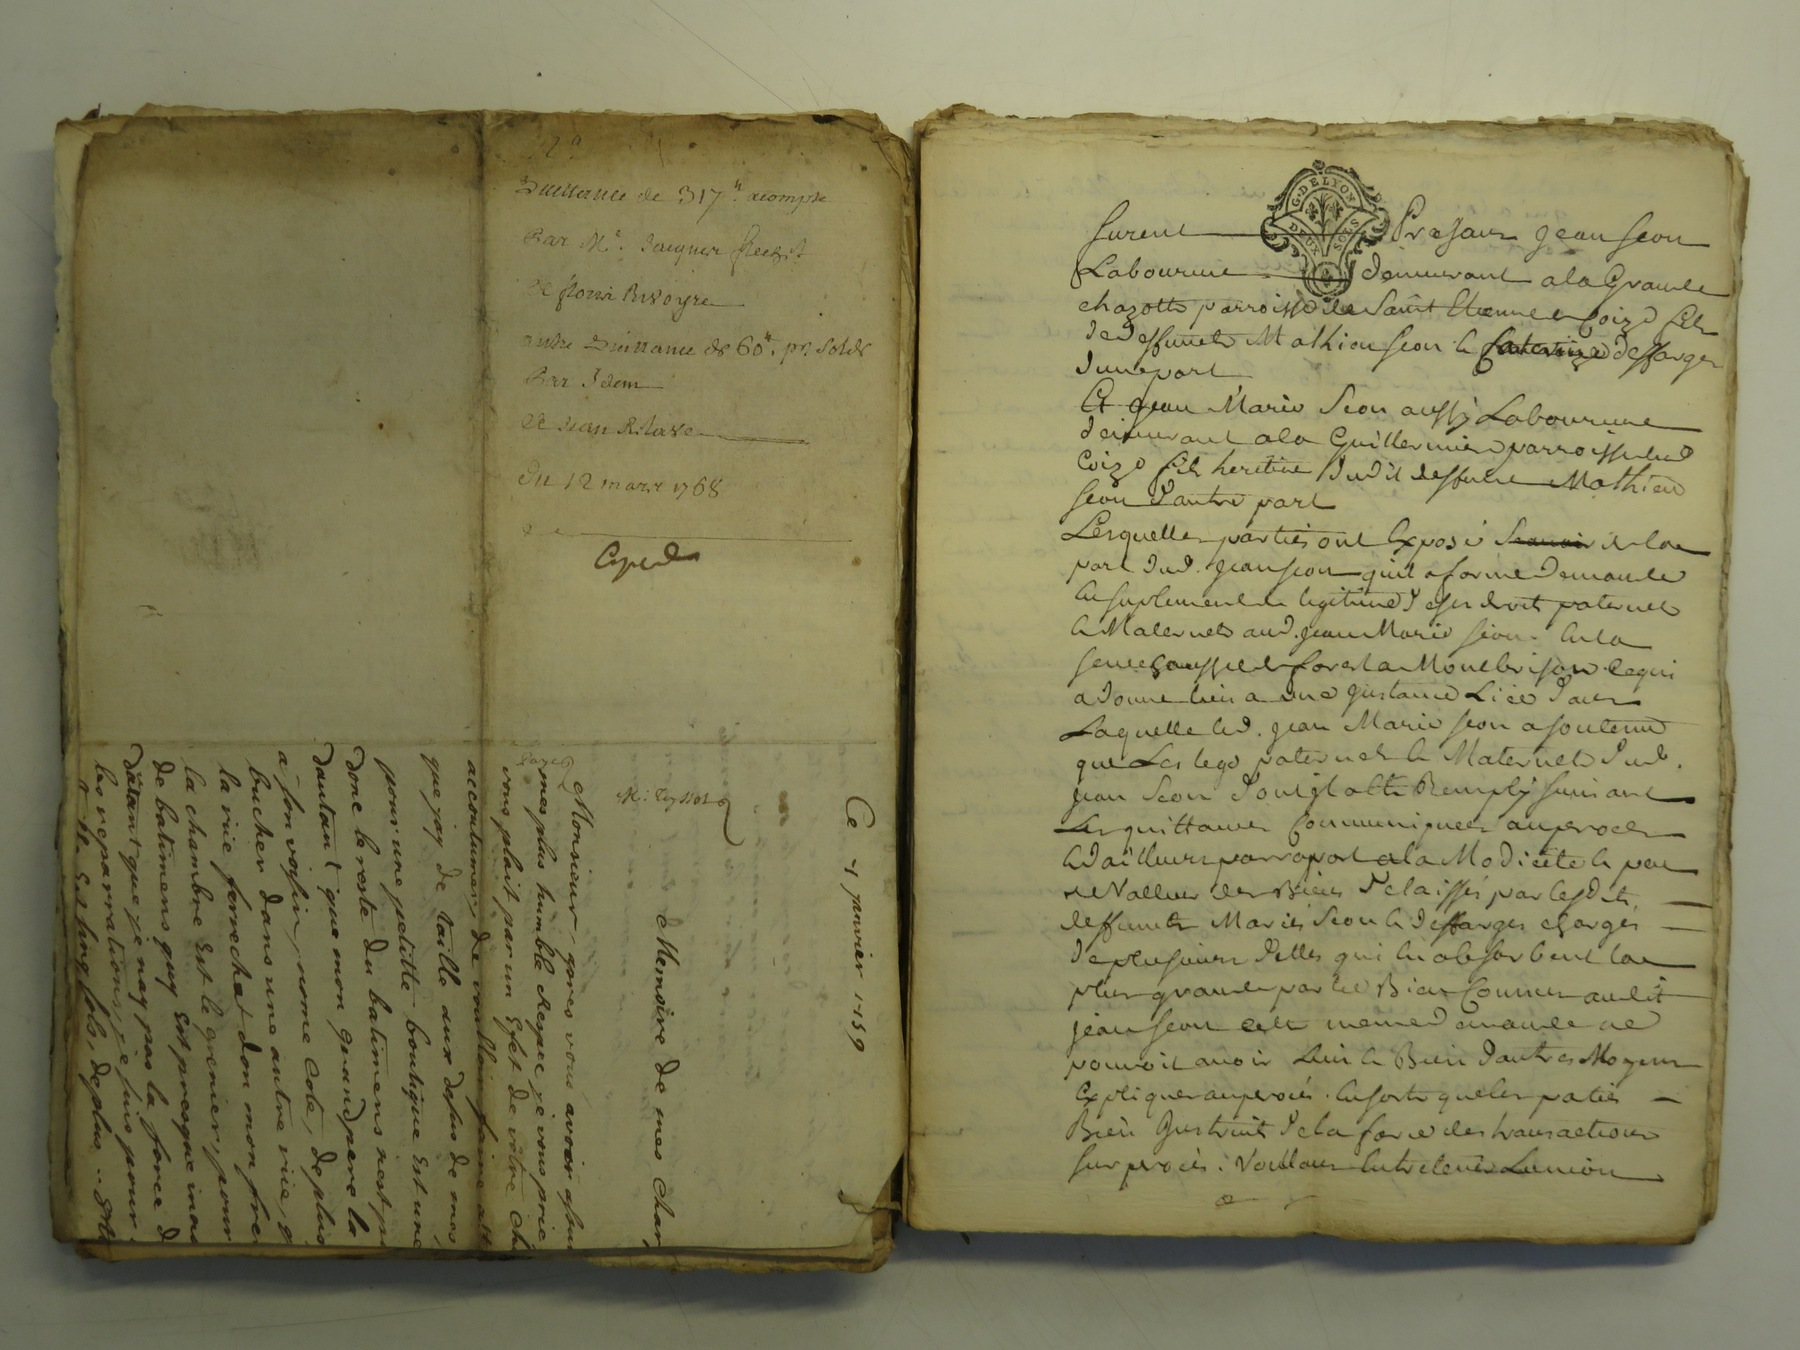 Quittance de 317ᵗᵗ. acompte
Par Mᵉ. Jacques
de fleurie Rivoyre
autre Quittance de 60ᵗᵗ. pr. Solde
Par Idem
de Jean
Du 12 mars 1768
Ce 4 janvier 1759
Memoire de mes char
Monsieur, apres vous avoir assu
mes plus humble Respec je vous prie
vous plait par un Efet de votre ch
accoutumer, De voulloir faire att
que jay de taille aux desus de mes
pour une petitte boutique Est une
Donc le reste Du batimens nest p
Dautant que mon grand pere la
a son voisin, nome Cote, De plus
bucher Dans une autre rüe, q
la rüe ferrechat Don mon fre
la chambre Est le grenier, pour
de batimens quy Est presque inou
Dautant que je nay pas la force D
les reparrations, je suis pour
sols, Deplus
G. DE LYON
DEUX SOLS
furent Presans Jean Seon
Laboureur demeurant a la Grande
chazotte parroisse de Saint Etienne Coize fils
de deffunts Mathieu Seon & Deffarges
d'une part
Et Jean Marie Seon aussy Laboureur
demeurant a la Guillermiere parroisse dud
Coize fils heretier dudit deffunt Mathieu
Seon d'autre part
Lesquelles parties ont Exposé de la
part dud. Jean Seon quil a formé Demande
En suplement de legitime & ses droit paternel
& Maternels aud. Jean Marie Seon En la
senechaussée de forest a Montbrison ce qui
a donné lieu a une Instance Liée dans
Laquelle led. Jean Marie Seon a soutenu
que Les legs paternel & Maternel dud.
Jean Seon Remply suivant
Les quittances Communiquées au procès
& d'ailleurs par raport a la Modicité & peu
de Valleur des Biens delaissés par lesdits
deffunts Mariés Seon & Deffarges chargés
de plusieurs dettes qui En absorbent la
plus grande partie Bien Connue audit
jean Seon cette meme demande ne
pouvoit avoir Lieu & Bien d'autres Moyens
Expliques au procès. En sorte que les parties
Bien Instruit de la force des transactions
sur procès. Voullant Entretenir Lunion